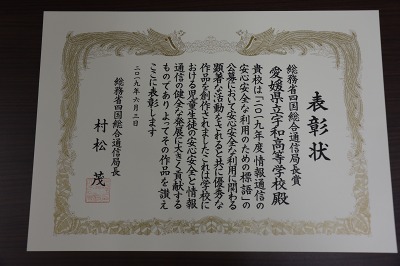 表彰状
総務省四国総合通信局長賞
愛媛県立宇和高等学校殿
貴校は「二〇一九年度情報通信の
安心安全な利用のための標語」の
公募において安心安全な利用に関わる
顕著な活動をされると共に優秀な
作品を創作されましたこれは学校に
おける児童生徒の安心安全と情報
通信の健全な発展に大きく貢献する
ものでありよってその作品を讃え
ここに表彰します
二〇一九年六月二日
総務省四国総合通信局長
村松 茂